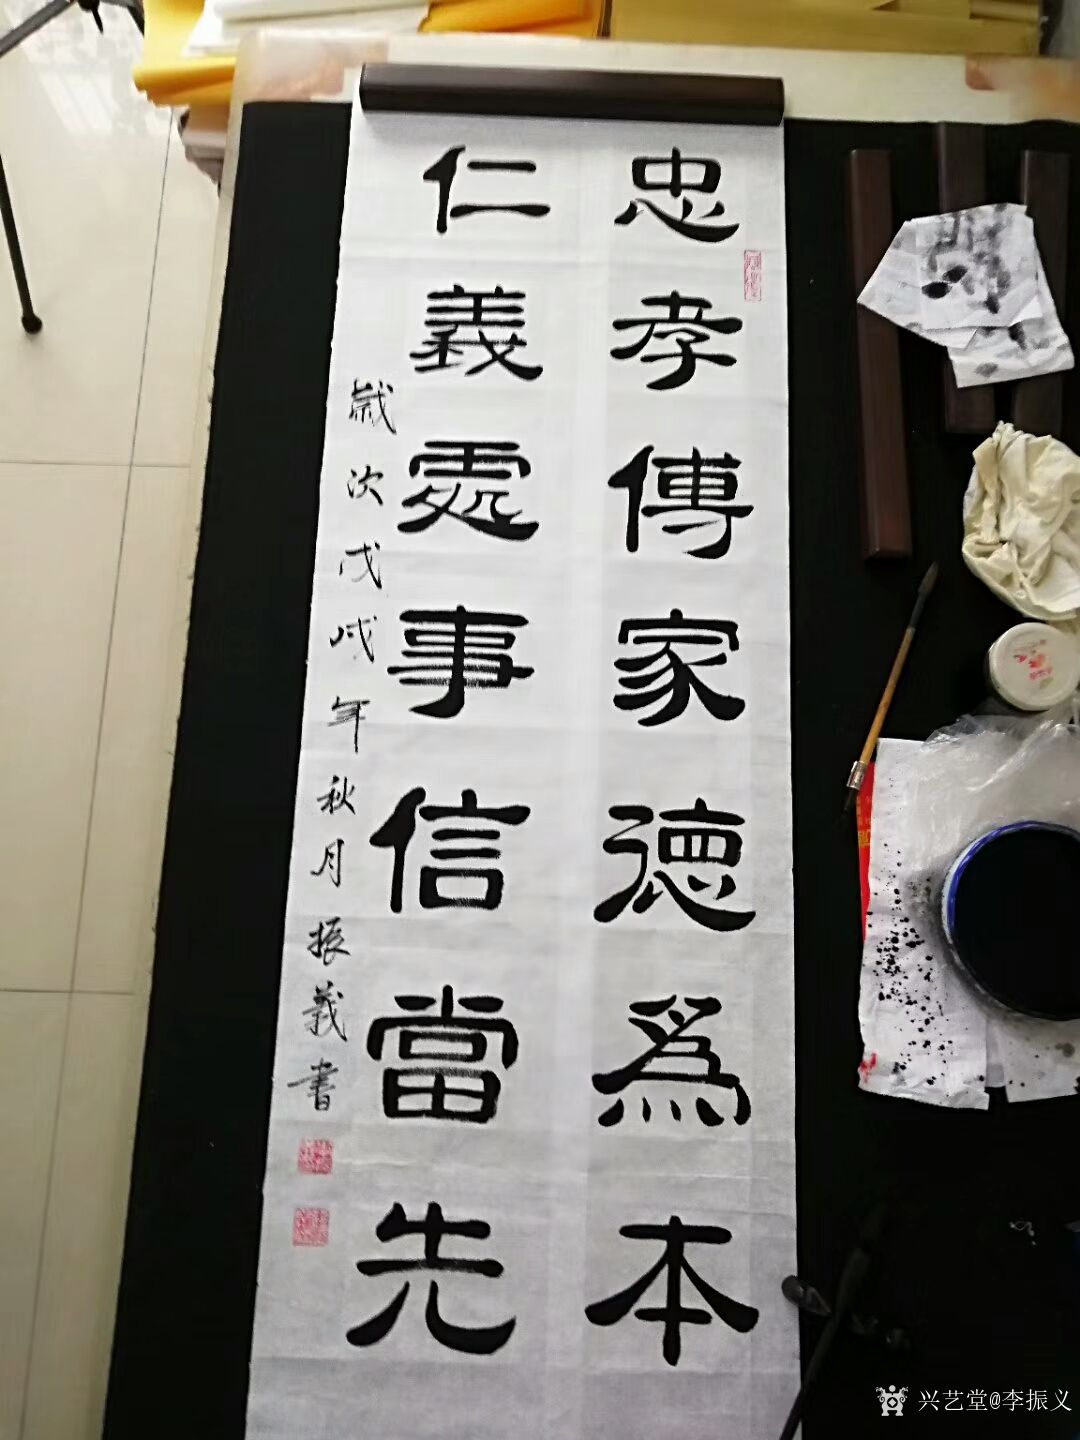 忠孝傳家德為本
仁義處事信當先
歲次戊戌年秋月振義書
兴艺堂@李振义